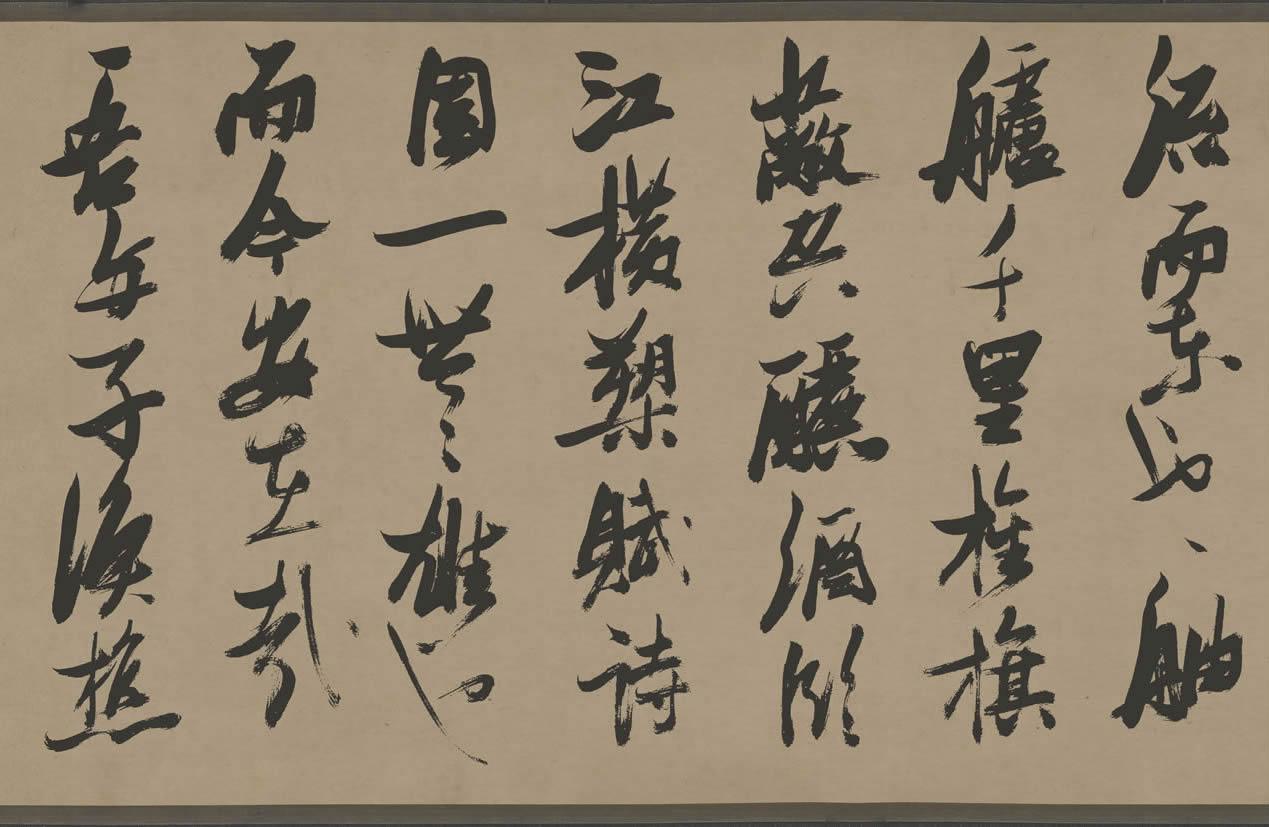 流而東也舳
艫千里旌旗
蔽空釃酒臨
江橫槊賦詩
固一世之雄也
而今安在哉
吾與子漁樵